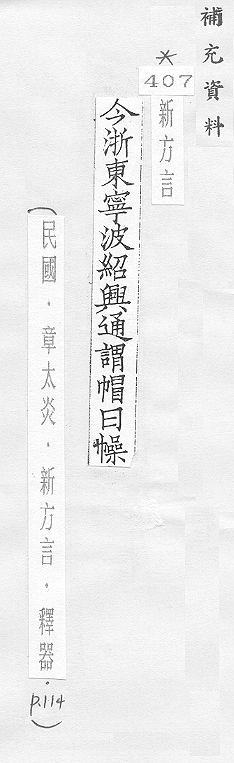 補充資料
*
407
新方言
今浙東寧波紹興通謂帽曰幧
(民國．章太炎．新方言．釋器．p.114)